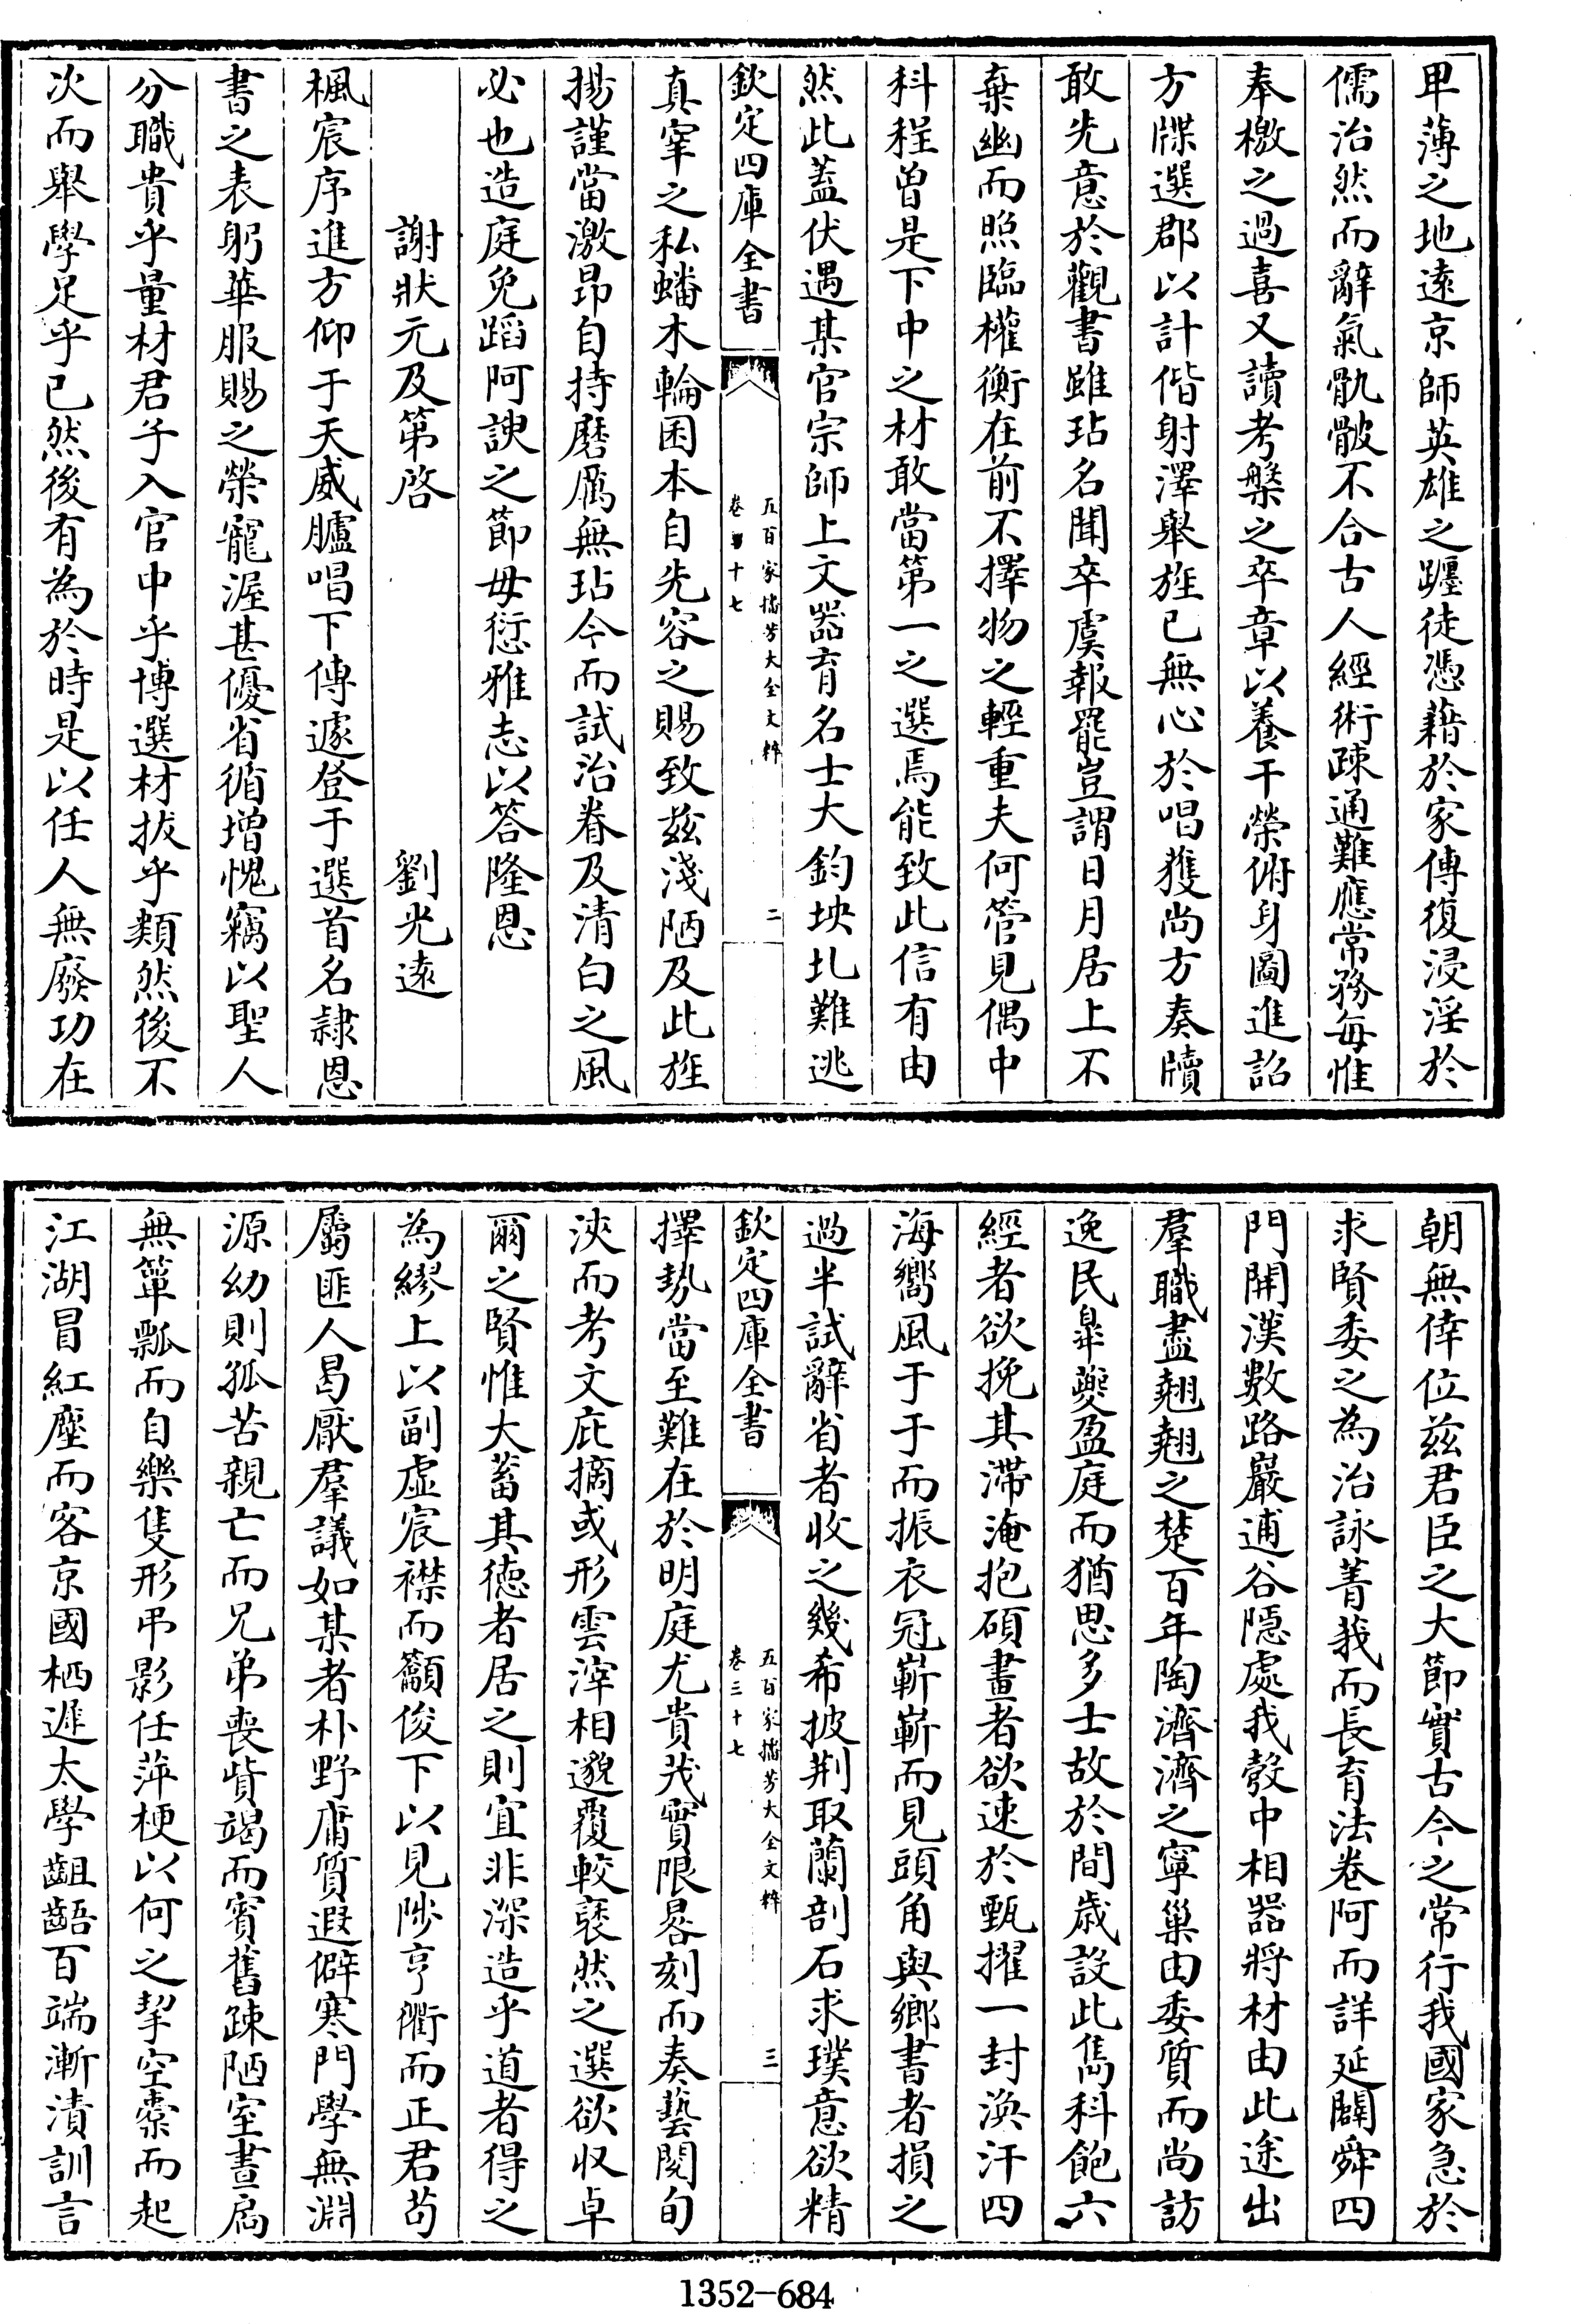 卑薄之地遠京師英雄之躔徒憑藉於家傳復浸淫於
儒治然而辭氣骯髒不合古人經術疎通難應常務每惟
奉檄之過喜又讀考槃之卒章以養干榮俯身圖進詔
方牒選郡以計偕射澤舉旌已無心於唱獲尚方奏牘
敢先意於觀書雖玷名聞卒虞報罷豈謂日月居上不
棄幽而照臨權衡在前不擇物之輕重夫何管見偶中
科程曾是下中之材敢當第一之選焉能致此信有由
然此蓋伏遇某官宗師上文器育名士大鈞坱圠難逃
欽定四庫全書
五百家播芳大全文粹
卷三十七
二
真宰之私蟠木輪囷本自先容之賜致兹淺陋及此旌
揚謹當激昂自持磨厲無玷今而試治眷及清白之風
必也造庭免蹈阿諛之節毋愆雅志以答隆恩
謝狀元及第啓
劉光遠
楓宸序進方仰于天威臚唱下傳遽登于選首名隷恩
書之表躬華服賜之榮寵渥甚優省循增愧竊以聖人
分職貴乎量材君子入官中乎博選材拔乎類然後不
次而舉學足乎已然後有為於時是以任人無廢功在
朝無倖位兹君臣之大節實古今之常行我國家急於
求賢委之為治詠菁莪而長育法卷阿而詳延闢舜四
門開漢數路巖逋谷隱處我彀中相器將材由此途出
羣職盡翹翹之楚百年陶濟濟之寧巢由委質而尚訪
逸民臯夔盈庭而猶思多士故於間歳設此雋科飽六
經者欲挽其滯淹抱碩畫者欲速於甄擢一封渙汗四
海嚮風于于而振衣冠嶄嶄而見頭角與鄉書者損之
過半試辭省者收之幾希披荆取蘭剖石求璞意欲精
欽定四庫全書
五百家播芳大全文粹
卷三十七
三
擇勢當至難在於明庭尤貴茂實限晷刻而奏藝閱旬
浹而考文庇摘或形雲滓相邈覆較褎然之選欲収卓
爾之賢惟大蓄其德者居之則宜非深造乎道者得之
為繆上以副虚宸襟而籲俊下以見陟亨衢而正君苟
屬匪人曷厭羣議如某者朴野庸質遐僻寒門學無淵
源幼則孤苦親亡而兄弟喪貲竭而賓舊疎陋室晝扃
無簞瓢而自樂隻形弔影任萍梗以何之挈空橐而起
江湖冒紅塵而客京國栖遲太學齟齬百端漸漬訓言
1352-684